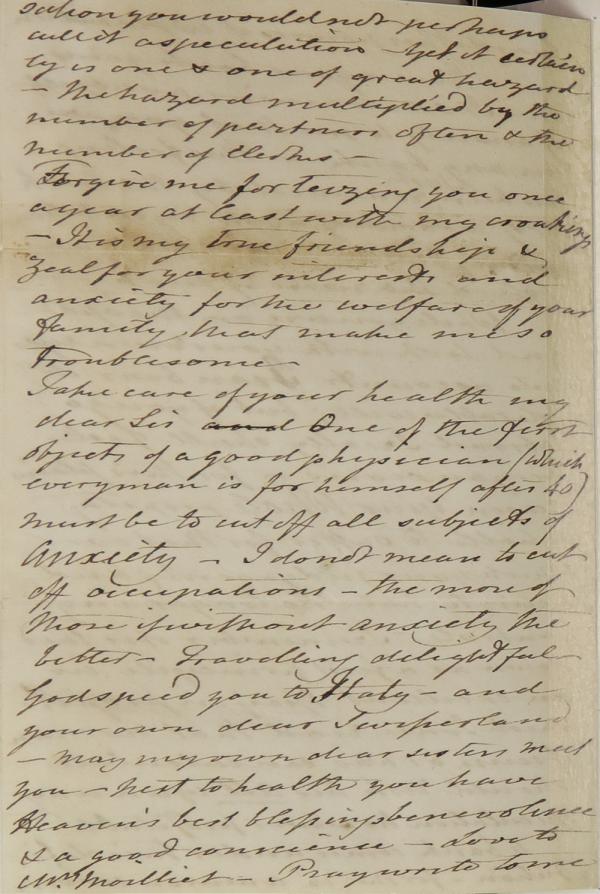 sation you would not perhaps
call it a speculation - Yet it certain
ly is one & one of great hazard
- the hazard multiplied by the
number of partners often & the
number of Clerks -
Forgive me for teizing you once
a year at least with my croakings
- It is my true friendship &
zeal for your interests and
anxiety for the welfare of your
family that make me so
troublesome -
Take care of your health my
dear Sir and One of the first
objects of a good physician (which
every man is for himself after 40)
must be to cut off all subjects of
anxiety - I do not mean to cut
off occupations - the more of
those if without anxiety the
better - Travelling delightful
God speed you to Italy - and
your own dear Swisserland
- may my own dear sisters meet
you - next to health you have
Heaven's best blessings benevolence
& a good conscience - Love to
Mrs. Moilliet - Pray write to me